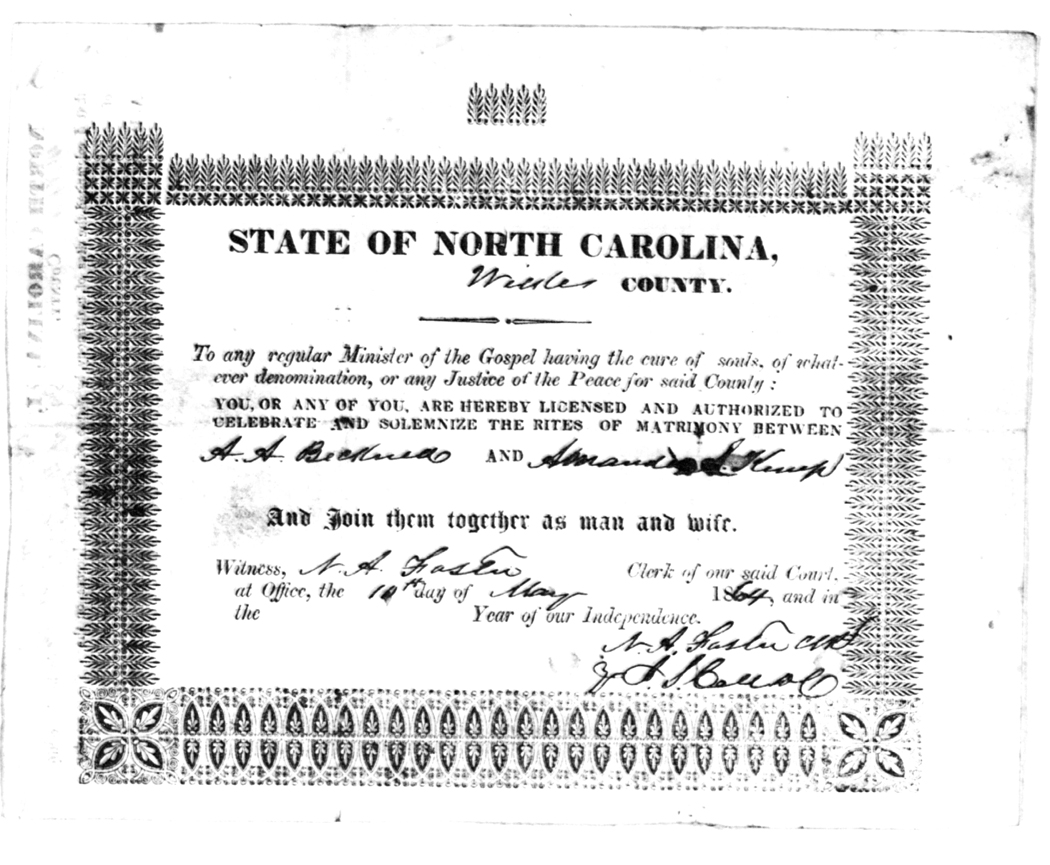 STATE OF NORTH CAROLINA,
Wilkes COUNTY.
To any regular Minister of the Gospel having the cure of souls, of what-
ever denomination, or any Justice of the Peace for said County:
YOU, OR ANY OF YOU, ARE HEREBY LICENSED AND AUTHORIZED TO
CELEBRATE AND SOLEMNIZE THE RITES OF MATRIMONY BETWEEN
A. A. AND Amanda Kemp
And Join them together as man and wife.
Witness, N. A. Foster Clerk of our said Court.
at Office, the 10th day of May 1864, and in
the Year of our Independence.
N. A. Foster
NORTH CAROLINA
COUNTY.